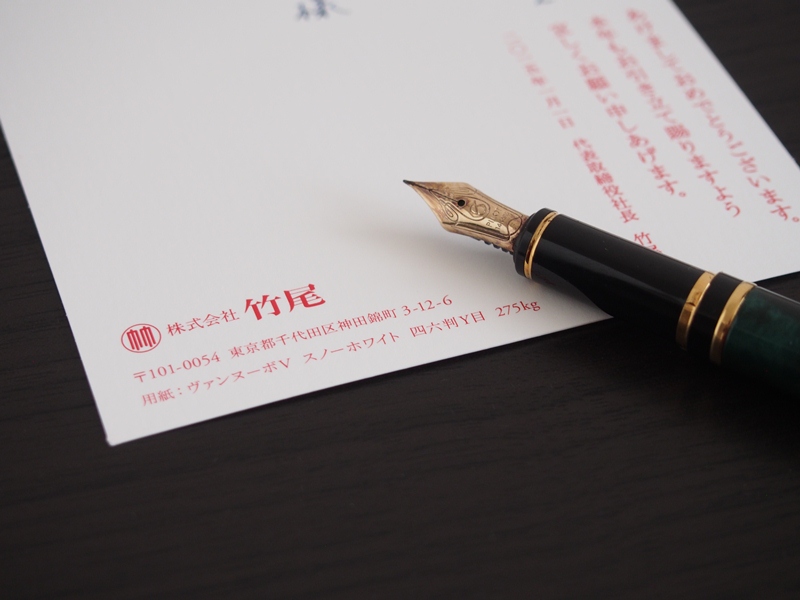 様
あけましておめでとうございます。
本年もお引き立て賜りますよう
宜しくお願い申しあげます。
二〇一五年一月一日 代表取締役社長 竹
株式会社 竹尾
〒101-0054 東京都千代田区神田錦町 3-12-6
用紙：ヴァンヌーボV スノーホワイト 四六判Y目 275kg